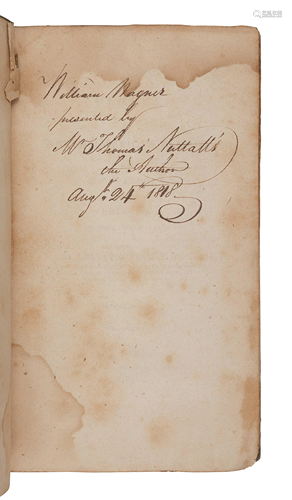 William Wagner
presented by
Mr Thomas Nuttall's
the Author
Augt. 24th 1818